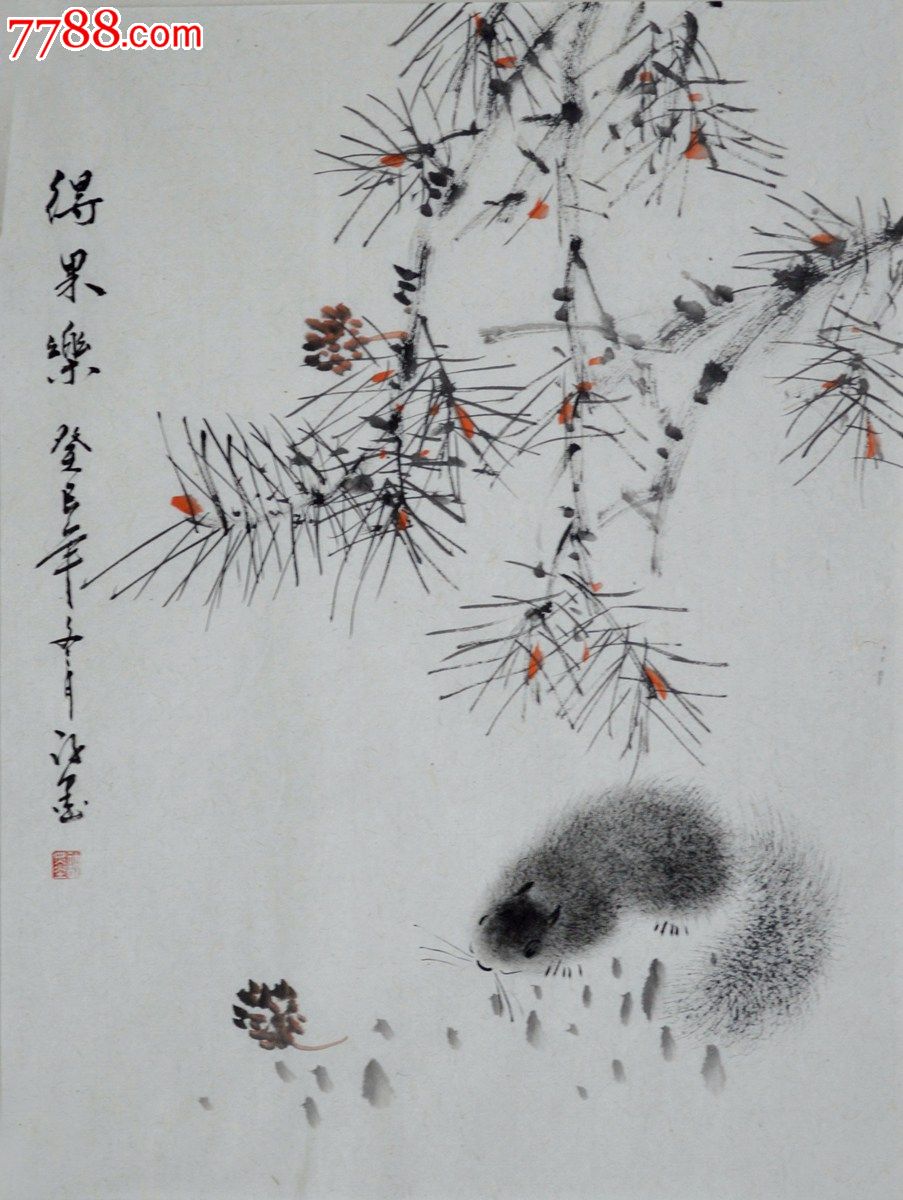 7788.com
得果樂 癸巳年冬月